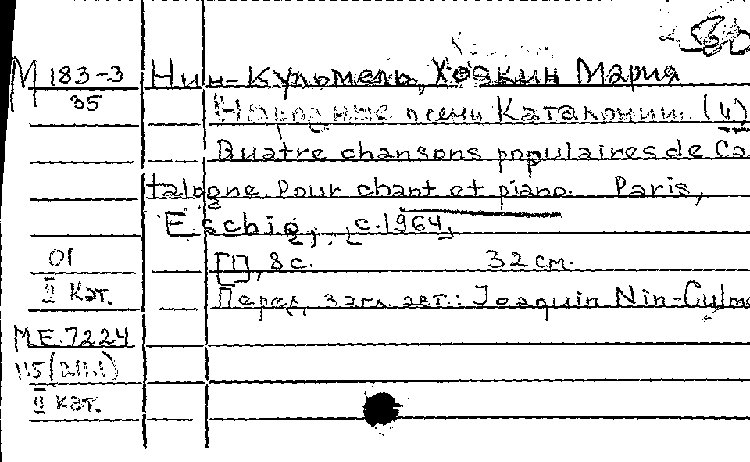 М 183-3 Нин-Кульмель, Хоакин Мария
35 Народные песни Каталонии. (4)
Quatre chansons populaires de Ca
talogne pour chant et piano. Paris,
Eschig, с.1964,
01 [1], 8 с. 32 см.
II Кат. Перед загл. авт.: Joaquin Nin-Culme
МЕ.7224
II Кат.